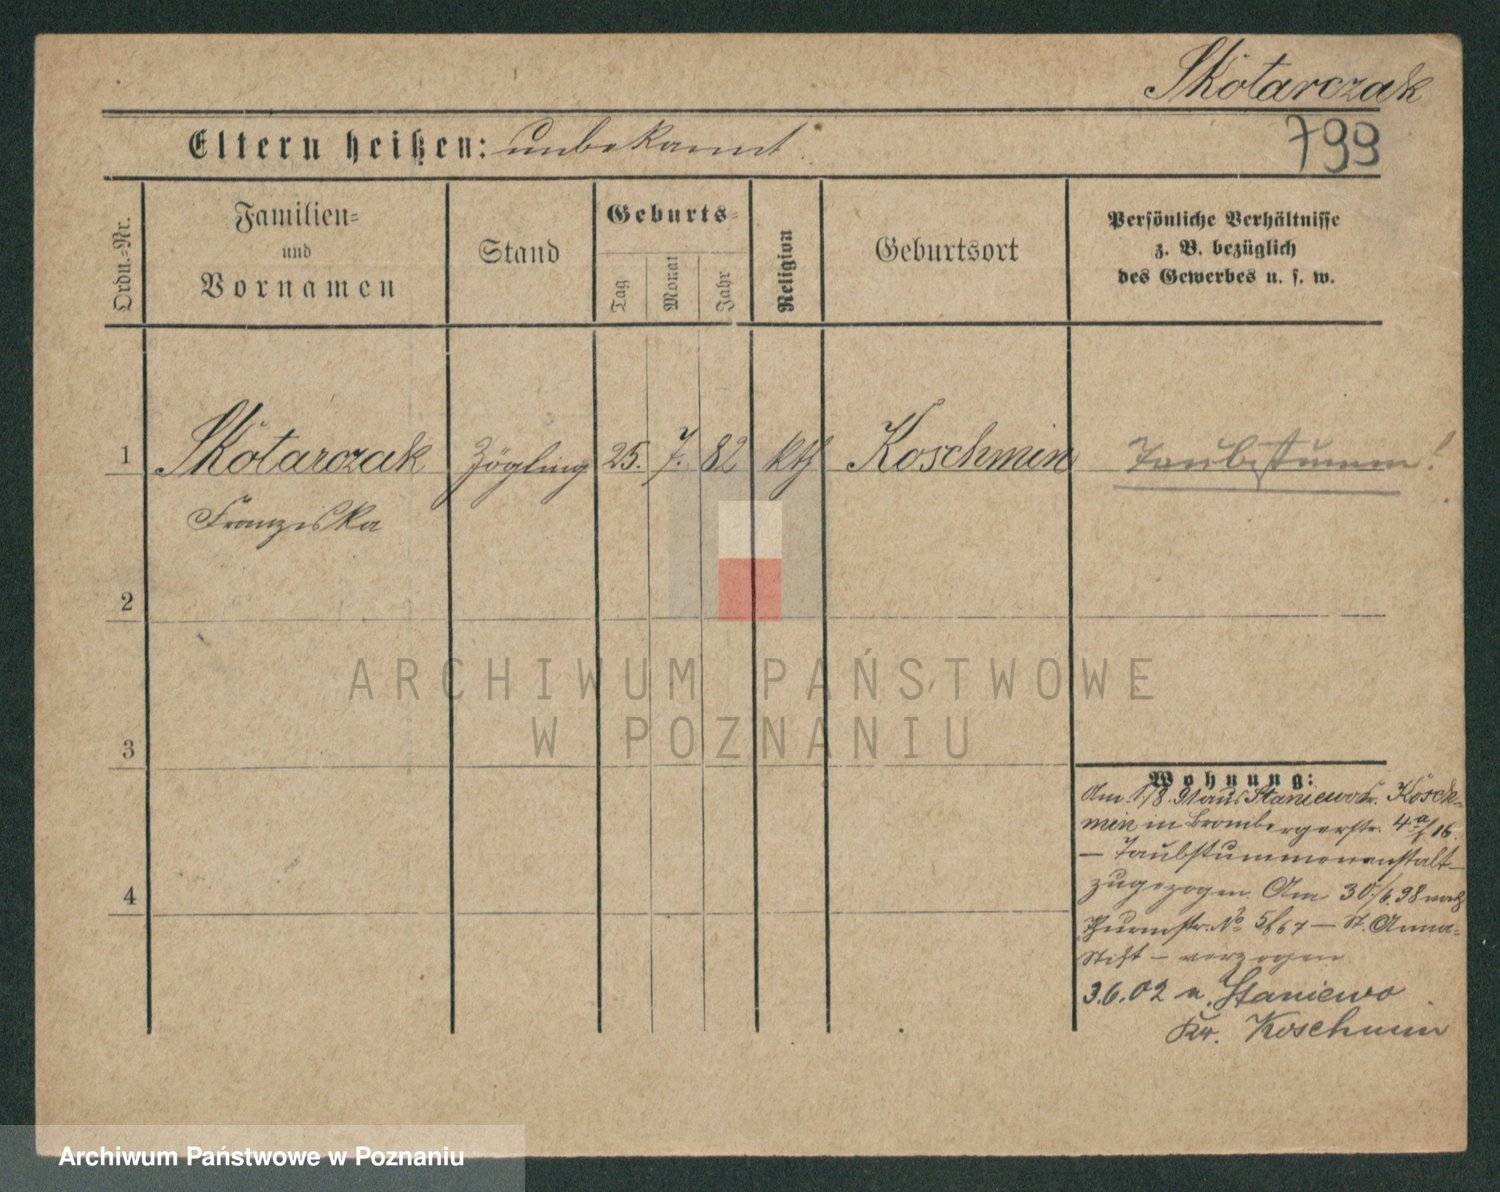 Skotarczak
799
Eltern heißen: unbekannt
Ordn.-Nr.
Familien-
und
Vornamen
Stand
Geburts-
Tag
Monat
Jahr
Religion
Geburtsort
Persönliche Verhältnisse
z. B. bezüglich
des Gewerbes u. s. w.
1 Skotarczak Zögling 25. 7. 82 kth Koschmin Taubstumm!
Franziska
2
3
4
Wohnung:
Am 1/8. 91 aus Staniewo Kr. Kosch-
min in Brombergerstr. 4a/16.
— Taubstummenanstalt —
zugezogen. Am 30/6. 98 nach
Thurmstr. No 5/67 — St. Anna-
Stift — verzogen
3.6.02 n. Staniewo
Kr. Koschmin
ARCHIWUM PAŃSTWOWE
W POZNANIU
Archiwum Państwowe w Poznaniu